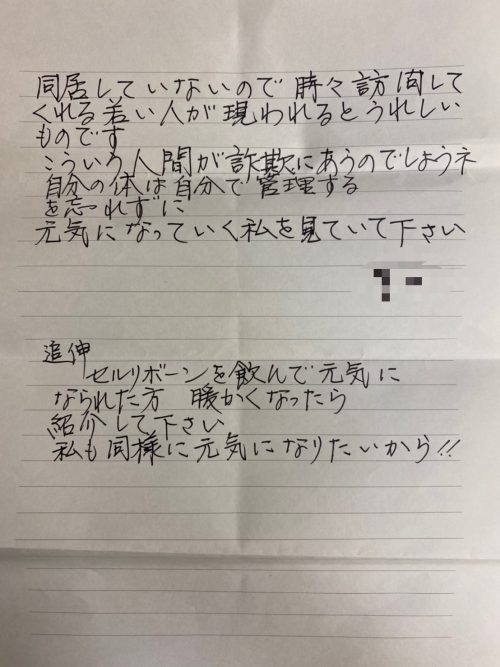 同居していないので 時々訪問して
くれる若い人が現われるとうれしい
ものです
こういう人間が詐欺にあうのでしょうネ
自分の体は自分で管理する
を忘れずに
元気になっていく私を見ていて下さい
追伸
セルリボーンを飲んで元気に
なられた方 暖かくなったら
紹介して下さい
私も同様に元気になりたいから!!